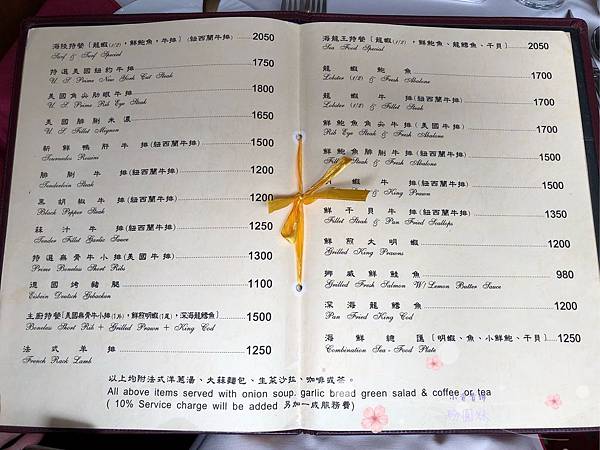 海陸特餐〔龍蝦(1/2),鮮鮑魚,牛排〕(紐西蘭牛排) 2050
Surf & Turf Special
特選美國紐約牛排 1750
U. S. Prime New York Cut Steak
美國角尖肋眼牛排 1800
U. S. Prime Rib Eye Steak
美國腓剛米濃 1650
U. S. Fillet Mignon
新鮮鴨肝牛排(紐西蘭牛排) 1500
Tournedos Rossini
腓剛牛排(紐西蘭牛排) 1200
Tenderloin Steak
黑胡椒牛排(紐西蘭牛排) 1200
Black Pepper Steak
蒜汁牛排(紐西蘭牛排) 1250
Tender Fillet Garlic Sauce
特選無骨牛小排(美國牛排) 1300
Prime Boneless Short Ribs
德國烤豬腿 1100
Eisbein Deutsch Gebacken
主廚特餐〔美國無骨牛小排(1片),鮮煎明蝦(1隻),深海龍鱈魚〕 1500
Boneless Short Rib + Grilled Prawn + King Cod
法式羊排 1250
French Rack Lamb
以上均附法式洋蔥湯、大蒜麵包、生菜沙拉、咖啡或茶。
All above items served with onion soup, garlic bread green salad & coffee or tea
( 10% Service charge will be added 另加一成服務費)
海龍王特餐〔龍蝦(1/2),鮮鮑魚、龍鱈魚、干貝〕 2050
Sea Food Special
龍蝦鮑魚 1700
Lobster (1/2) & Fresh Abalone
龍蝦牛排(紐西蘭牛排) 1700
Lobster (1/2) & Fillet Steak
鮮鮑魚角尖牛排(美國牛排) 1700
Rib Eye Steak & Fresh Abalone
鮮鮑魚腓剛牛排(紐西蘭牛排) 1500
Fillet Steak & Fresh Abalone
蝦牛排(紐西蘭牛排) 1500
& King Prawn
鮮干貝牛排(紐西蘭牛排) 1350
Fillet Steak & Pan Fried Scallops
鮮煎大明蝦 1200
Grilled King Prawns
挪威鮮鮭魚 980
Grilled Fresh Salmon W/ Lemon Butter Sauce
深海龍鱈魚 1200
Pan Fried King Cod
海鮮總匯〔明蝦、魚、小鮮鮑、干貝〕 1250
Combination Sea-Food Plate